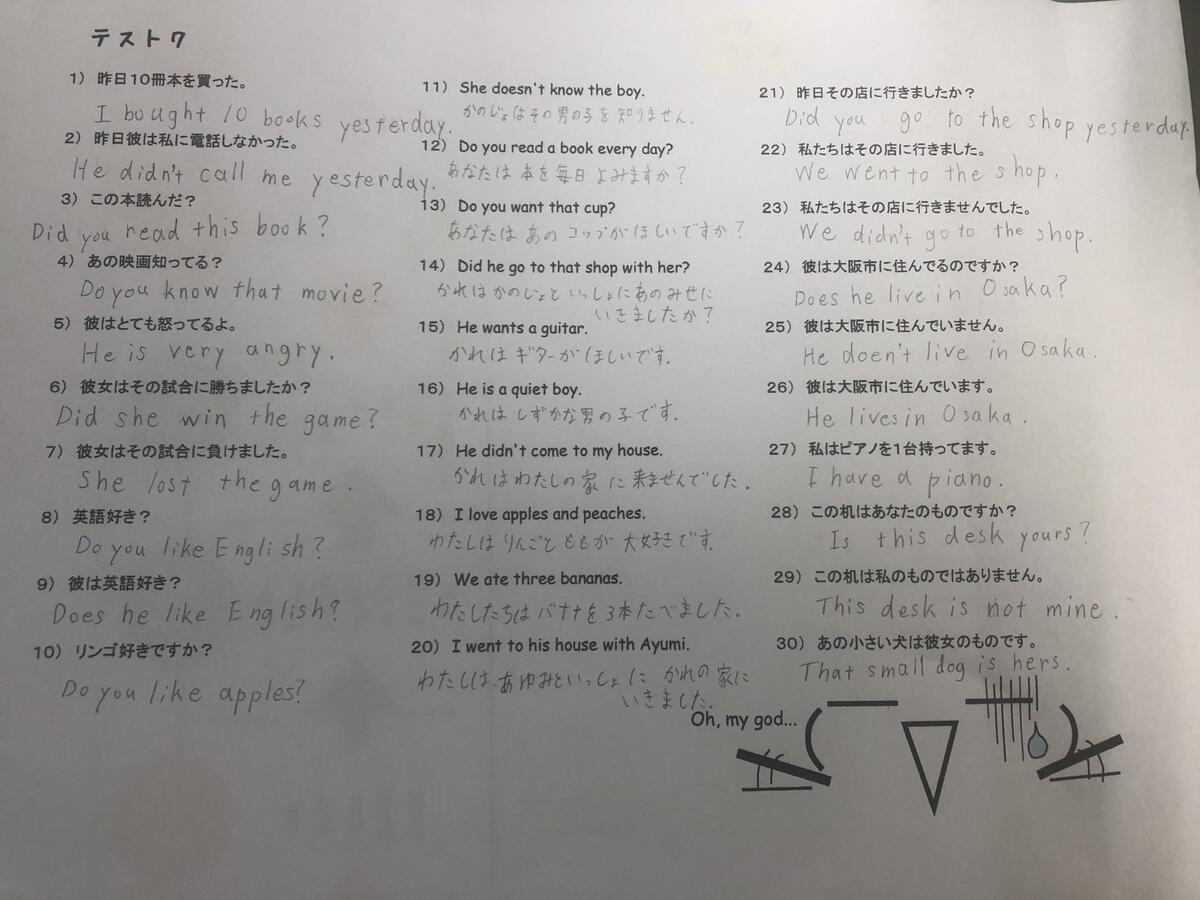 テスト7
1） 昨日10冊本を買った。
I bought 10 books yesterday.
2） 昨日彼は私に電話しなかった。
He didn't call me yesterday.
3） この本読んだ？
Did you read this book?
4） あの映画知ってる？
Do you know that movie?
5） 彼はとても怒ってるよ。
He is very angry.
6） 彼女はその試合に勝ちましたか？
Did she win the game?
7） 彼女はその試合に負けました。
She lost the game.
8） 英語好き？
Do you like English?
9） 彼は英語好き？
Does he like English?
10） リンゴ好きですか？
Do you like apples?
11） She doesn't know the boy.
かのじょはその男の子を知りません。
12） Do you read a book every day?
あなたは本を毎日よみますか？
13） Do you want that cup?
あなたはあのコップがほしいですか？
14） Did he go to that shop with her?
かれはかのじょといっしょにあのみせに
いきましたか？
15） He wants a guitar.
かれはギターがほしいです。
16） He is a quiet boy.
かれはしずかな男の子です。
17） He didn't come to my house.
かれはわたしの家に来ませんでした。
18） I love apples and peaches.
わたしはりんごとももが大好きです。
19） We ate three bananas.
わたしたちはバナナを3本たべました。
20） I went to his house with Ayumi.
わたしは、あゆみといっしょにかれの家に
いきました。
21） 昨日その店に行きましたか？
Did you go to the shop yesterday.
22） 私たちはその店に行きました。
We went to the shop.
23） 私たちはその店に行きませんでした。
We didn't go to the shop.
24） 彼は大阪市に住んでるのですか？
Does he live in Osaka?
25） 彼は大阪市に住んでいません。
He doen't live in Osaka.
26） 彼は大阪市に住んでいます。
He lives in Osaka.
27） 私はピアノを1台持ってます。
I have a piano.
28） この机はあなたのものですか？
Is this desk yours?
29） この机は私のものではありません。
This desk is not mine.
30） あの小さい犬は彼女のものです。
That small dog is hers.
Oh, my god...